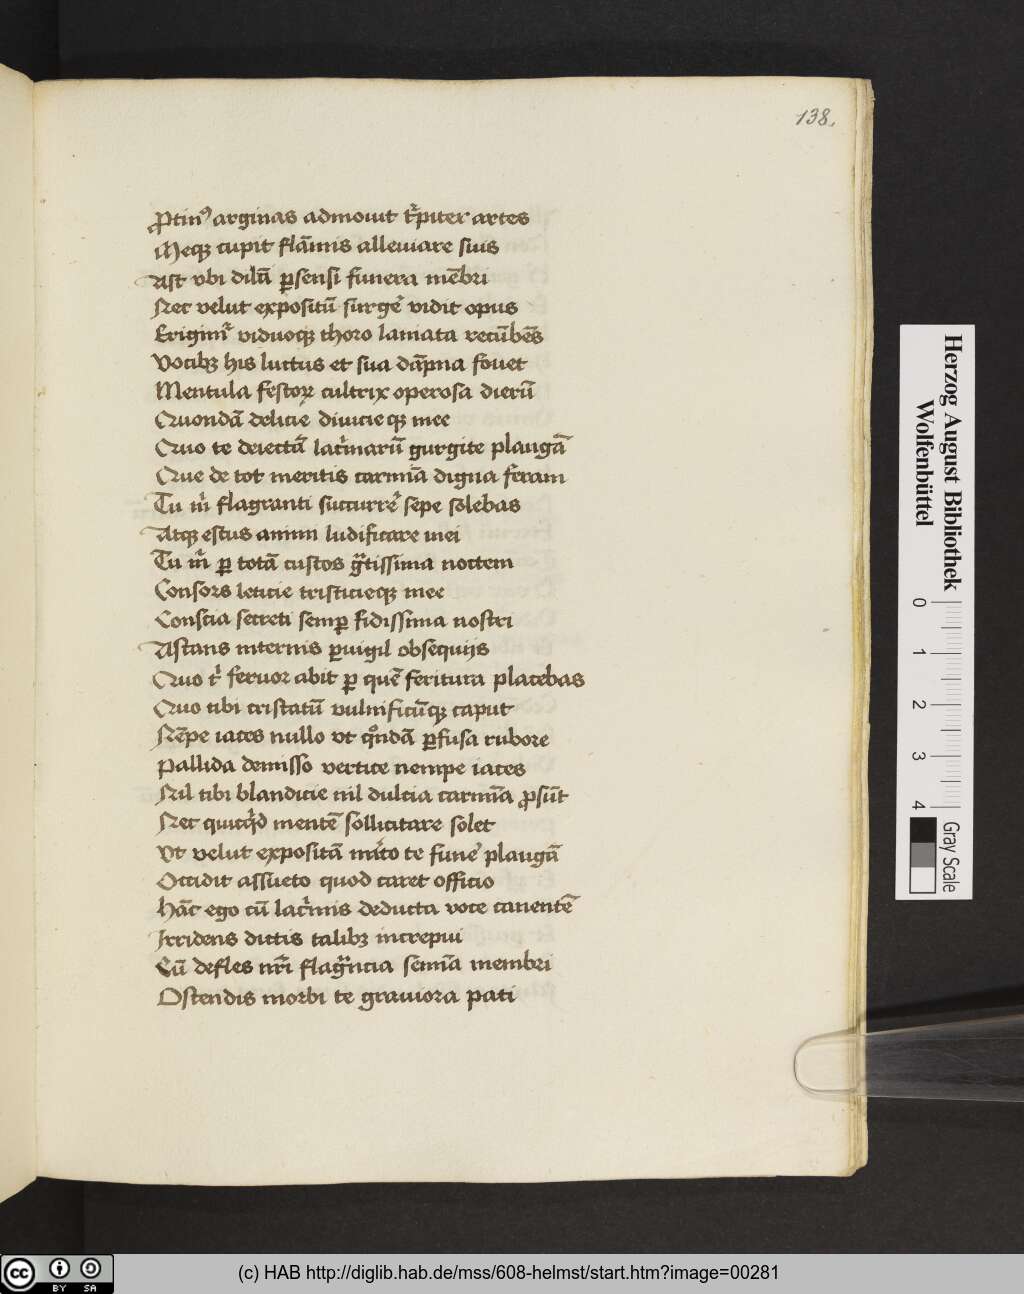 138.
ꝓtinꝰ arginas admouit tᷣpiter artes
Meqꝫ cupit flāmis alleuiare suis
Ast vbi dilūi ꝑsensi funera mēbri
Nec velut expositū surgeʾ vidit opus
Erigimᷣ viduoqꝫ thoro laniata recūbēs
Vocibꝫ his luctus et sua dāpna fouet
Mentula festoꝝ cultrix operosa dierū
Quondā delicie diuicieqꝫ mee
Quo te deiectā lacͥmarū gurgite plangā
Que de tot meritis carmīa digna feram
Tu mͥ flagranti succurreʾ sepe solebas
Atqꝫ estus animi ludificare mei
Tu mͥ ꝑ totā custos gᷓtissima noctem
Consors leticie tristicieqꝫ mee
Conscia secreti semꝑ fidissima nostri
Astans internis ꝑuigil obsequijs
Quo tͥ feruor abit ꝑ quē feritura placebas
Quo tibi cristatū vulnificūqꝫ caput
Nēpe iaces nullo vt qͦndā ꝑfusa rubore
Pallida demisso vertice nempe iaces
Nil tibi blandicie nil dulcia carmīa ꝓsūt
Nec quicqͥd mentē sollicitare solet
Vt velut expositā mͥto te funeʾ plangā
Occidit assueto quod caret officio
Hāc ego cū lacͥmis deducta voce canentē
Irridens dictis talibꝫ increpui
Cū defles nr̄i flagᷓncia semīa membri
Ostendis morbi te grauiora pati
Herzog August Bibliothek
Wolfenbüttel
0 1 2 3 4
Gray Scale
BY SA
(c) HAB http://diglib.hab.de/mss/608-helmst/start.htm?image=00281